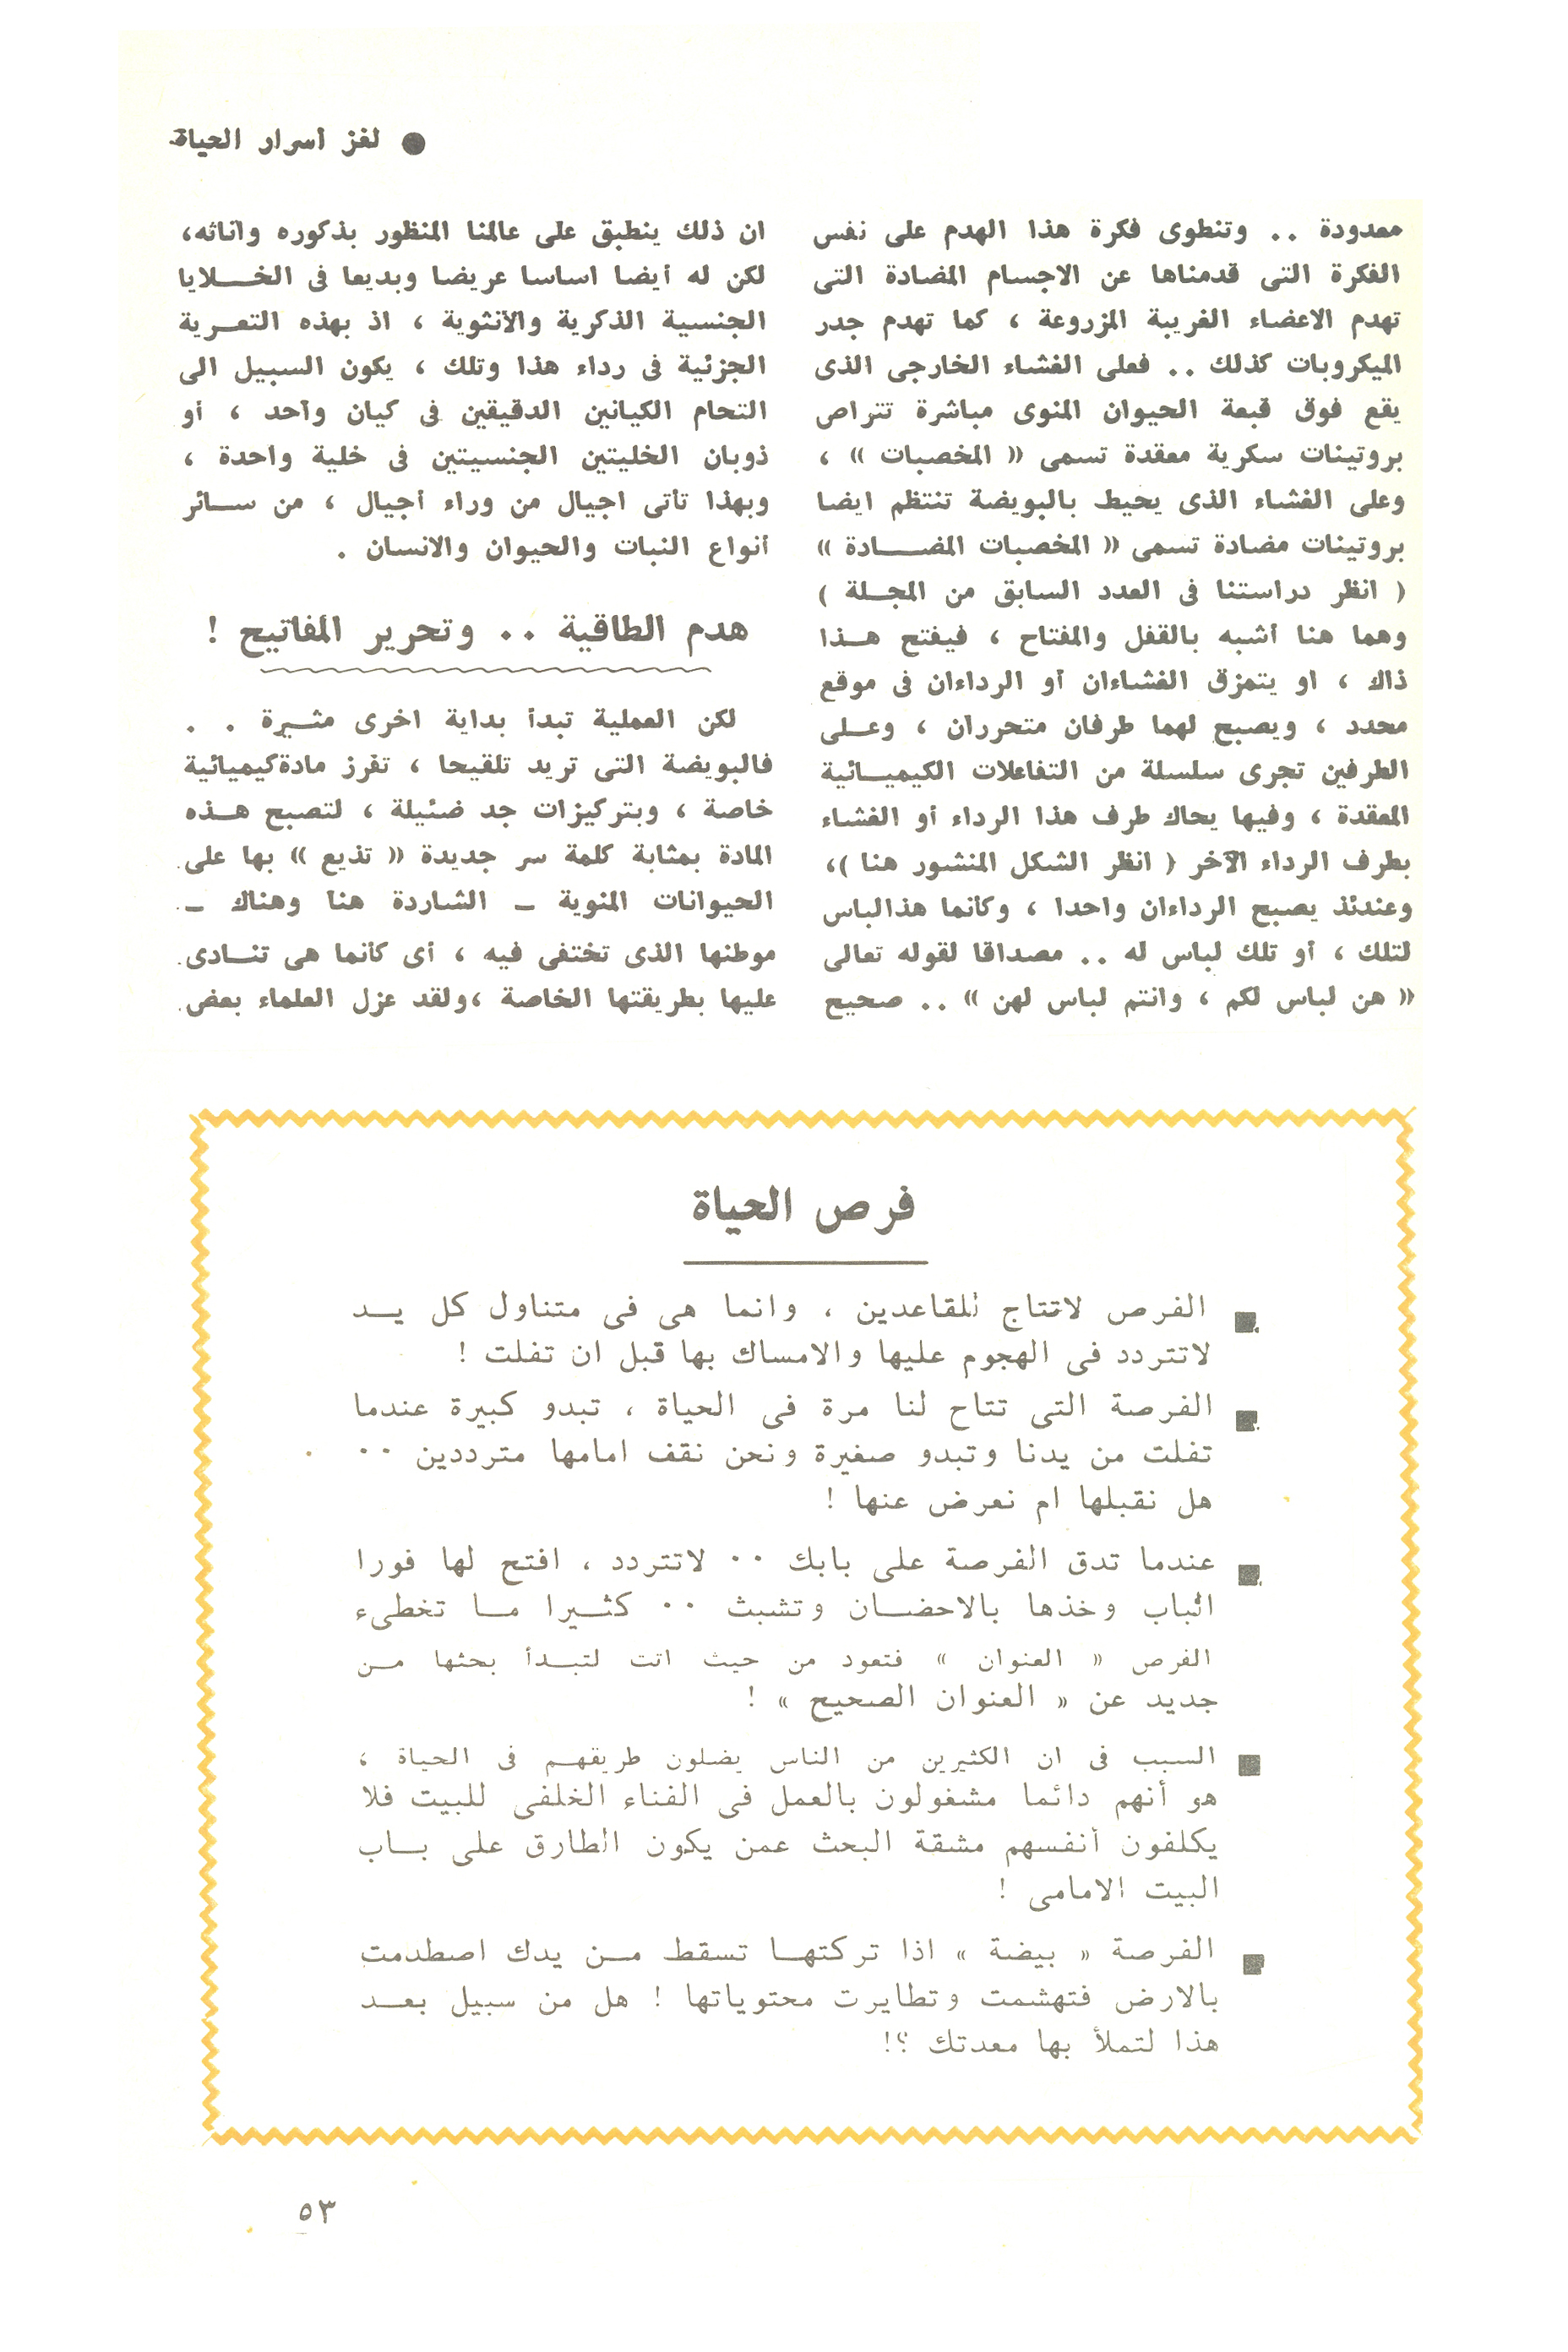 ● لغز أسرار الحياة
معدودة .. وتنطوى فكرة هذا الهدم على نفس
الفكرة التى قدمناها عن الاجسام المضادة التى
تهدم الاعضاء الغريبة المزروعة ، كما تهدم جدر
الميكروبات كذلك .. فعلى الغشاء الخارجى الذى
يقع فوق قبعة الحيوان المنوى مباشرة تتراص
بروتينات سكرية معقدة تسمى « المخصبات » ،
وعلى الغشاء الذى يحيط بالبويضة تنتظم ايضا
بروتينات مضادة تسمى « المخصبات المضادة »
( انظر دراستنا فى العدد السابق من المجلة )
وهما هنا أشبه بالقفل والمفتاح ، فيفتح هذا
ذاك ، او يتمزق الغشاءان أو الرداءان فى موقع
محدد ، ويصبح لهما طرفان متحرران ، وعلى
الطرفين تجرى سلسلة من التفاعلات الكيميائية
المعقدة ، وفيها يحاك طرف هذا الرداء أو الغشاء
بطرف الرداء الآخر ( انظر الشكل المنشور هنا )،
وعندئذ يصبح الرداءان واحدا ، وكأنما هذالباس
لتلك ، أو تلك لباس له .. مصداقا لقوله تعالى
« هن لباس لكم ، وانتم لباس لهن » .. صحيح
ان ذلك ينطبق على عالمنا المنظور بذكوره واناثه،
لكن له أيضا اساسا عريضا وبديعا فى الخلايا
الجنسية الذكرية والأنثوية ، اذ بهذه التعرية
الجزئية فى رداء هذا وتلك ، يكون السبيل الى
التحام الكيانين الدقيقين فى كيان واحد ، أو
ذوبان الخليتين الجنسيتين فى خلية واحدة ،
وبهذا تأتى اجيال من وراء أجيال ، من سائر
أنواع النبات والحيوان والانسان .
هدم الطاقية .. وتحرير المفاتيح !
لكن العملية تبدأ بداية اخرى مثيرة . .
فالبويضة التى تريد تلقيحا ، تفرز مادةكيميائية
خاصة ، وبتركيزات جد ضئيلة ، لتصبح هذه
المادة بمثابة كلمة سر جديدة « تذيع » بها على
الحيوانات المنوية – الشاردة هنا وهناك –
موطنها الذى تختفى فيه ، أى كأنما هى تنادى
عليها بطريقتها الخاصة ،ولقد عزل العلماء بعض
فرص الحياة
■ الفرص لاتتاح للقاعدين ، وانما هى فى متناول كل يد
لاتتردد فى الهجوم عليها والامساك بها قبل ان تفلت !
■ الفرصة التى تتاح لنا مرة فى الحياة ، تبدو كبيرة عندما
تفلت من يدنا وتبدو صغيرة ونحن نقف امامها مترددين ..
هل نقبلها ام نعرض عنها !
■ عندما تدق الفرصة على بابك .. لاتتردد ، افتح لها فورا
الباب وخذها بالاحضان وتشبث .. كثيرا ما تخطىء
الفرص « العنوان » فتعود من حيث اتت لتبدأ بحثها من
جديد عن « العنوان الصحيح » !
■ السبب فى ان الكثيرين من الناس يضلون طريقهم فى الحياة ،
هو أنهم دائما مشغولون بالعمل فى الفناء الخلفى للبيت فلا
يكلفون أنفسهم مشقة البحث عمن يكون الطارق على باب
البيت الامامى !
■ الفرصة « بيضة » اذا تركتها تسقط من يدك اصطدمت
بالارض فتهشمت وتطايرت محتوياتها ! هل من سبيل بعد
هذا لتملأ بها معدتك ؟!
٥٣